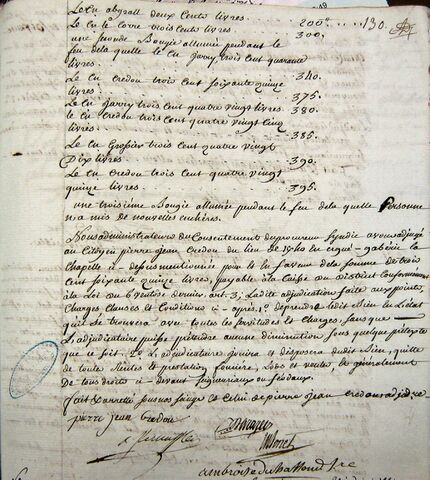 Le Cn abgrall deux Cents livres. 200# .... 130.
Le Cn le Corre trois Cents livres. 300.
une seconde Bougie allumée pendant le
feu de la quelle le Cn Jarry trois Cent quarante
livres. 340.
Le Cn Credou trois Cent soixante quinze
livres. 375.
Le Cn Jarry trois Cent quatre vingt livres. 380.
le Cn Credou trois Cent quatre vingt Cinq
livres. 385.
Le Cn trois Cent quatre vingt
Dix livres. 390.
Le Cn Credou trois Cent quatre vingt
quinze livres. 395.
une troisieme Bougie allumée pendant le feu de la quelle Personne
n'a mis de nouvelles enchères.
Nous administrateurs du Consentement du procureur syndic avons adjugé
au Citoyen pierre jean Credou du lieu de en gabéric la
Chapelle ci-dessus mentionnée pour et en faveur de la somme de trois
Cent soixante quinze livres, payable à la Caisse du District Conformément
à la Loi du 6 ventose dernier. art. 3, Ladite adjudication faite aux points,
Charges Clauses et Conditions ci-après, 1° de prendre ledit Bien en l'état
qu'il se trouvera avec toutes les servitudes et Charges, sans que
L'adjudicataire puisse prétendre aucune diminution sous quelque prétexte
que ce soit. 2° L'adjudicataire jouira et disposera dudit Bien, quitte
de toute Rentes et prestation fonciere, Lods et ventes et généralement
De tous droits ci-devant seigneuriaux ou féodaux.
fait et arretté sous nos signes et Celui de pierre jean Credou adjre
pierre Jean Credou